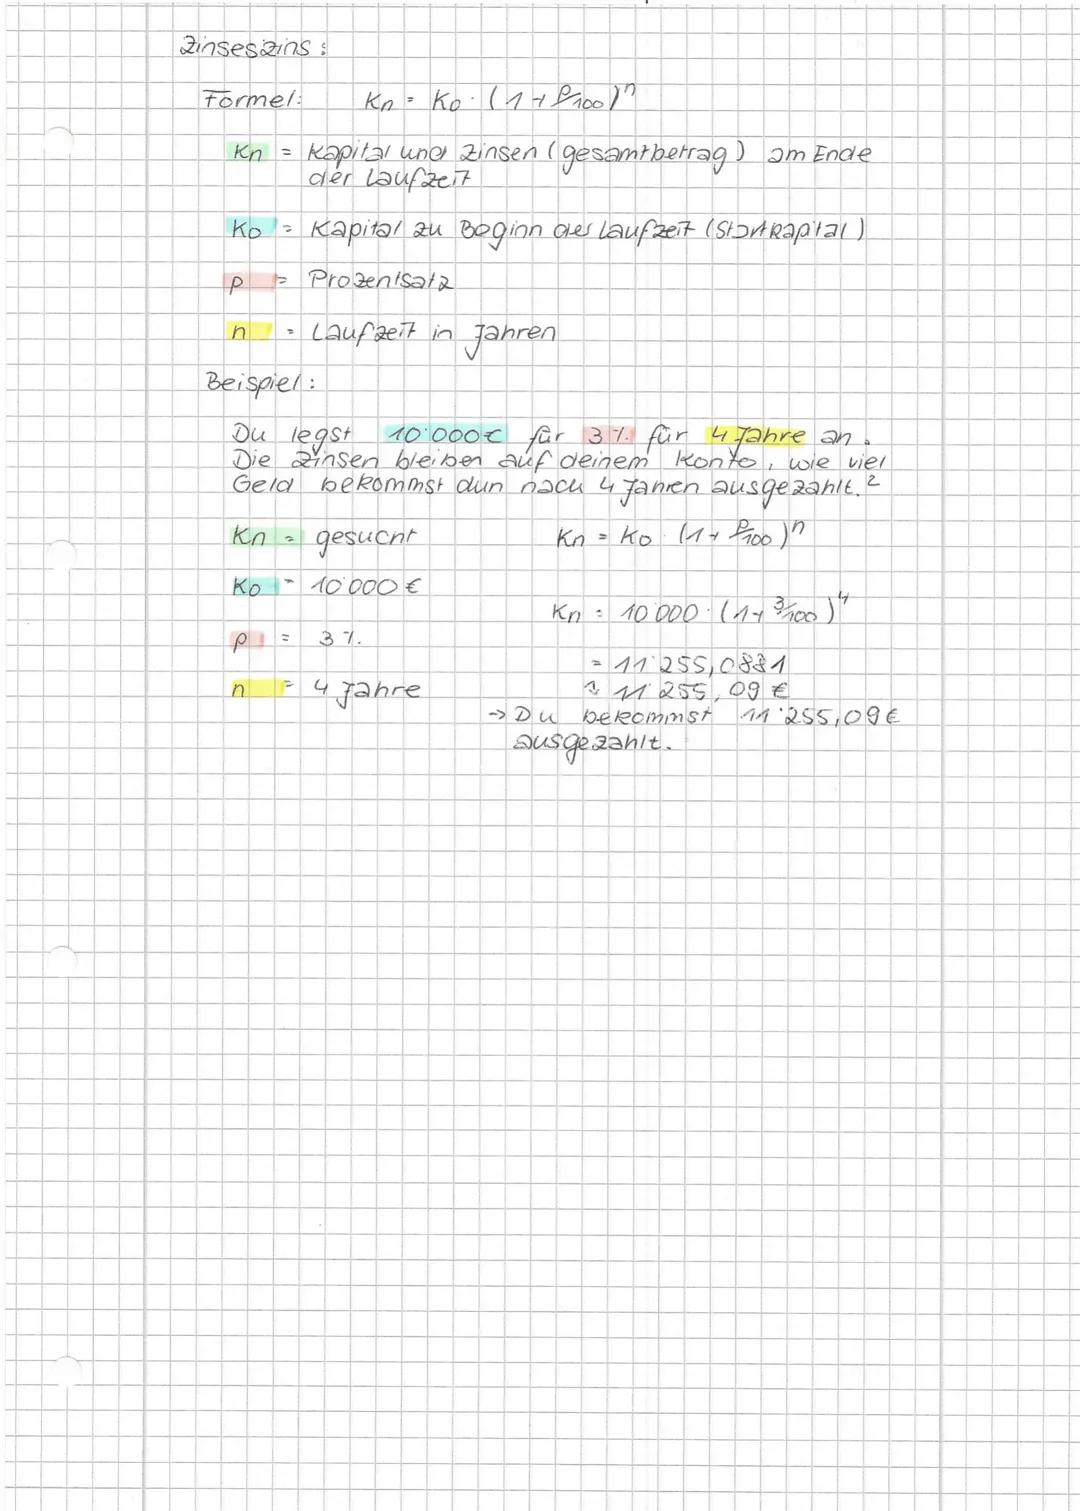 Zinseszins:
Formel: Kn = Ko · (1 + p/100)^n
Kn = Kapital und Zinsen (gesamtbetrag) am Ende
der Laufzeit
Ko = Kapital zu Beginn der Laufzeit (Startkapital)
p = Prozentsatz
n = Laufzeit in Jahren
Beispiel:
Du legst 10'000€ für 3% für 4 Jahre an.
Die Zinsen bleiben auf deinem Konto, wie viel
Geld bekommst dun nach 4 Jahren ausgezahlt.?
Kn = gesucht
Kn = Ko · (1 + p/100)^n
Ko = 10'000 €
Kn = 10'000 · (1 + 3/100)^4
p = 3%
= 11'255,0881
n = 4 Jahre
≈ 11'255,09 €
-> Du bekommst 11'255,09€
ausgezahlt.